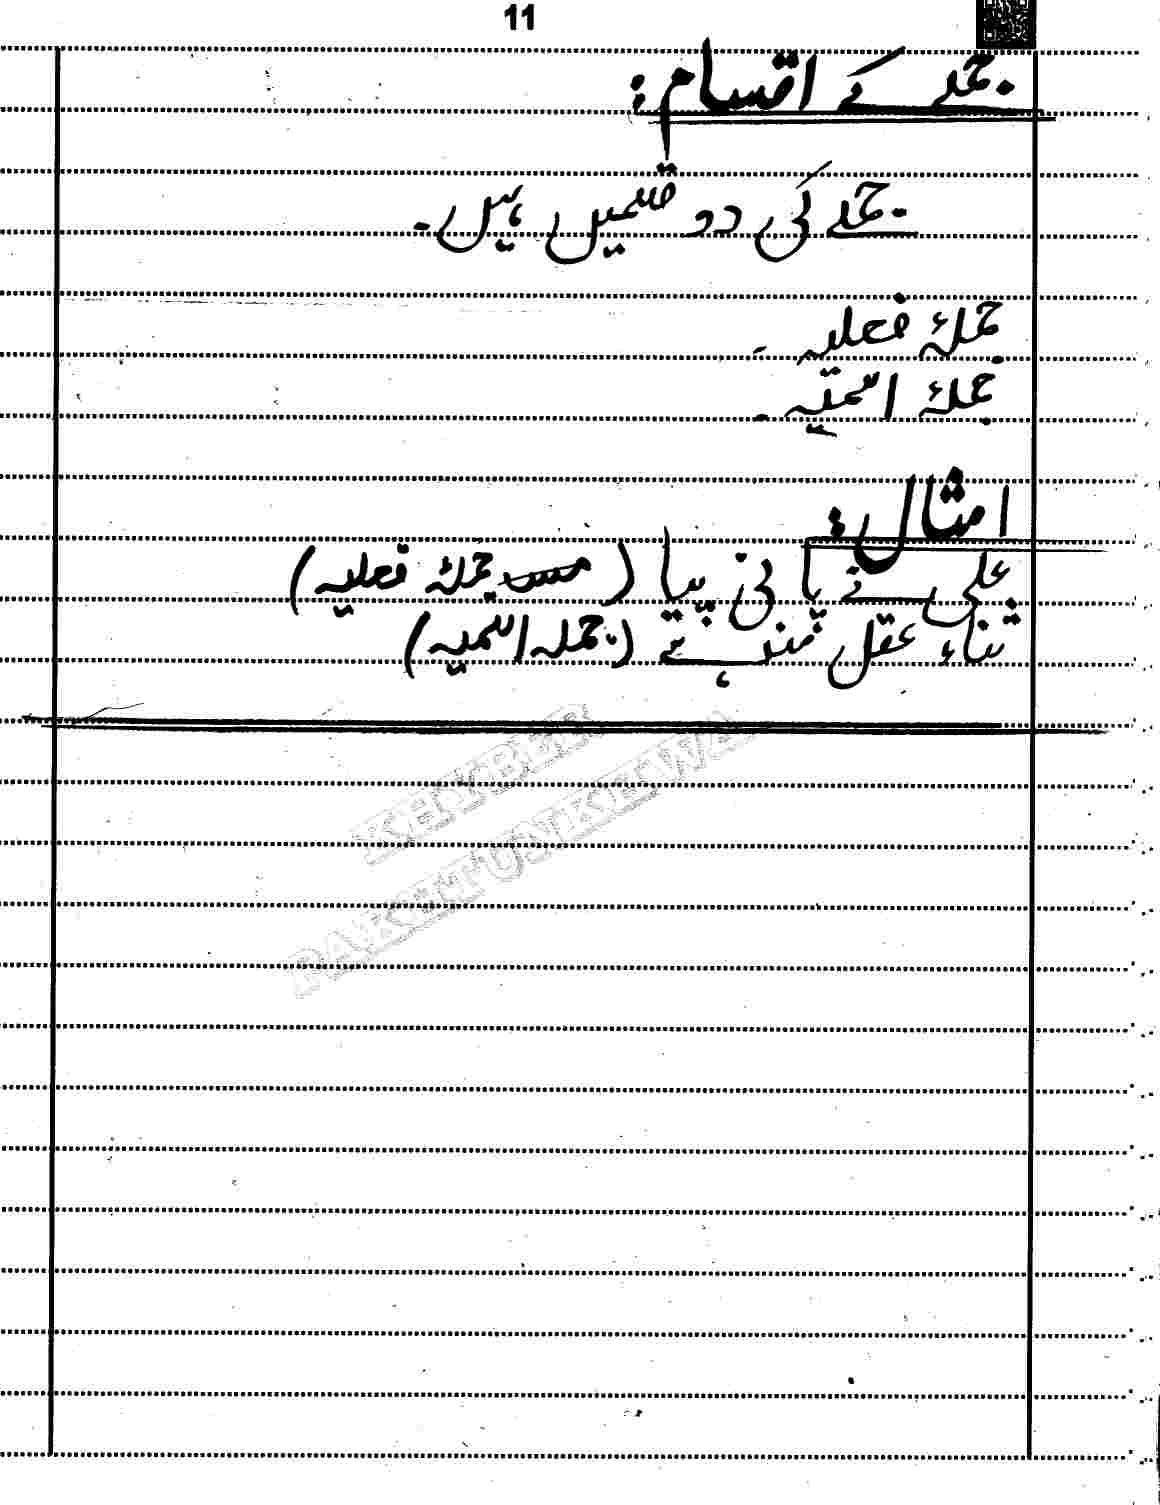 11
جملے کے اقسام:
جملے کی دو قسمیں ہیں۔
جملۂ فعلیہ ۔
جملۂ اسمیہ ۔
امثال:
علی نے پانی پیا (جملۂ فعلیہ)
ثناء عقل مند ہے (جملہ اسمیہ)
KHYBER
PAKHTUNKHWA